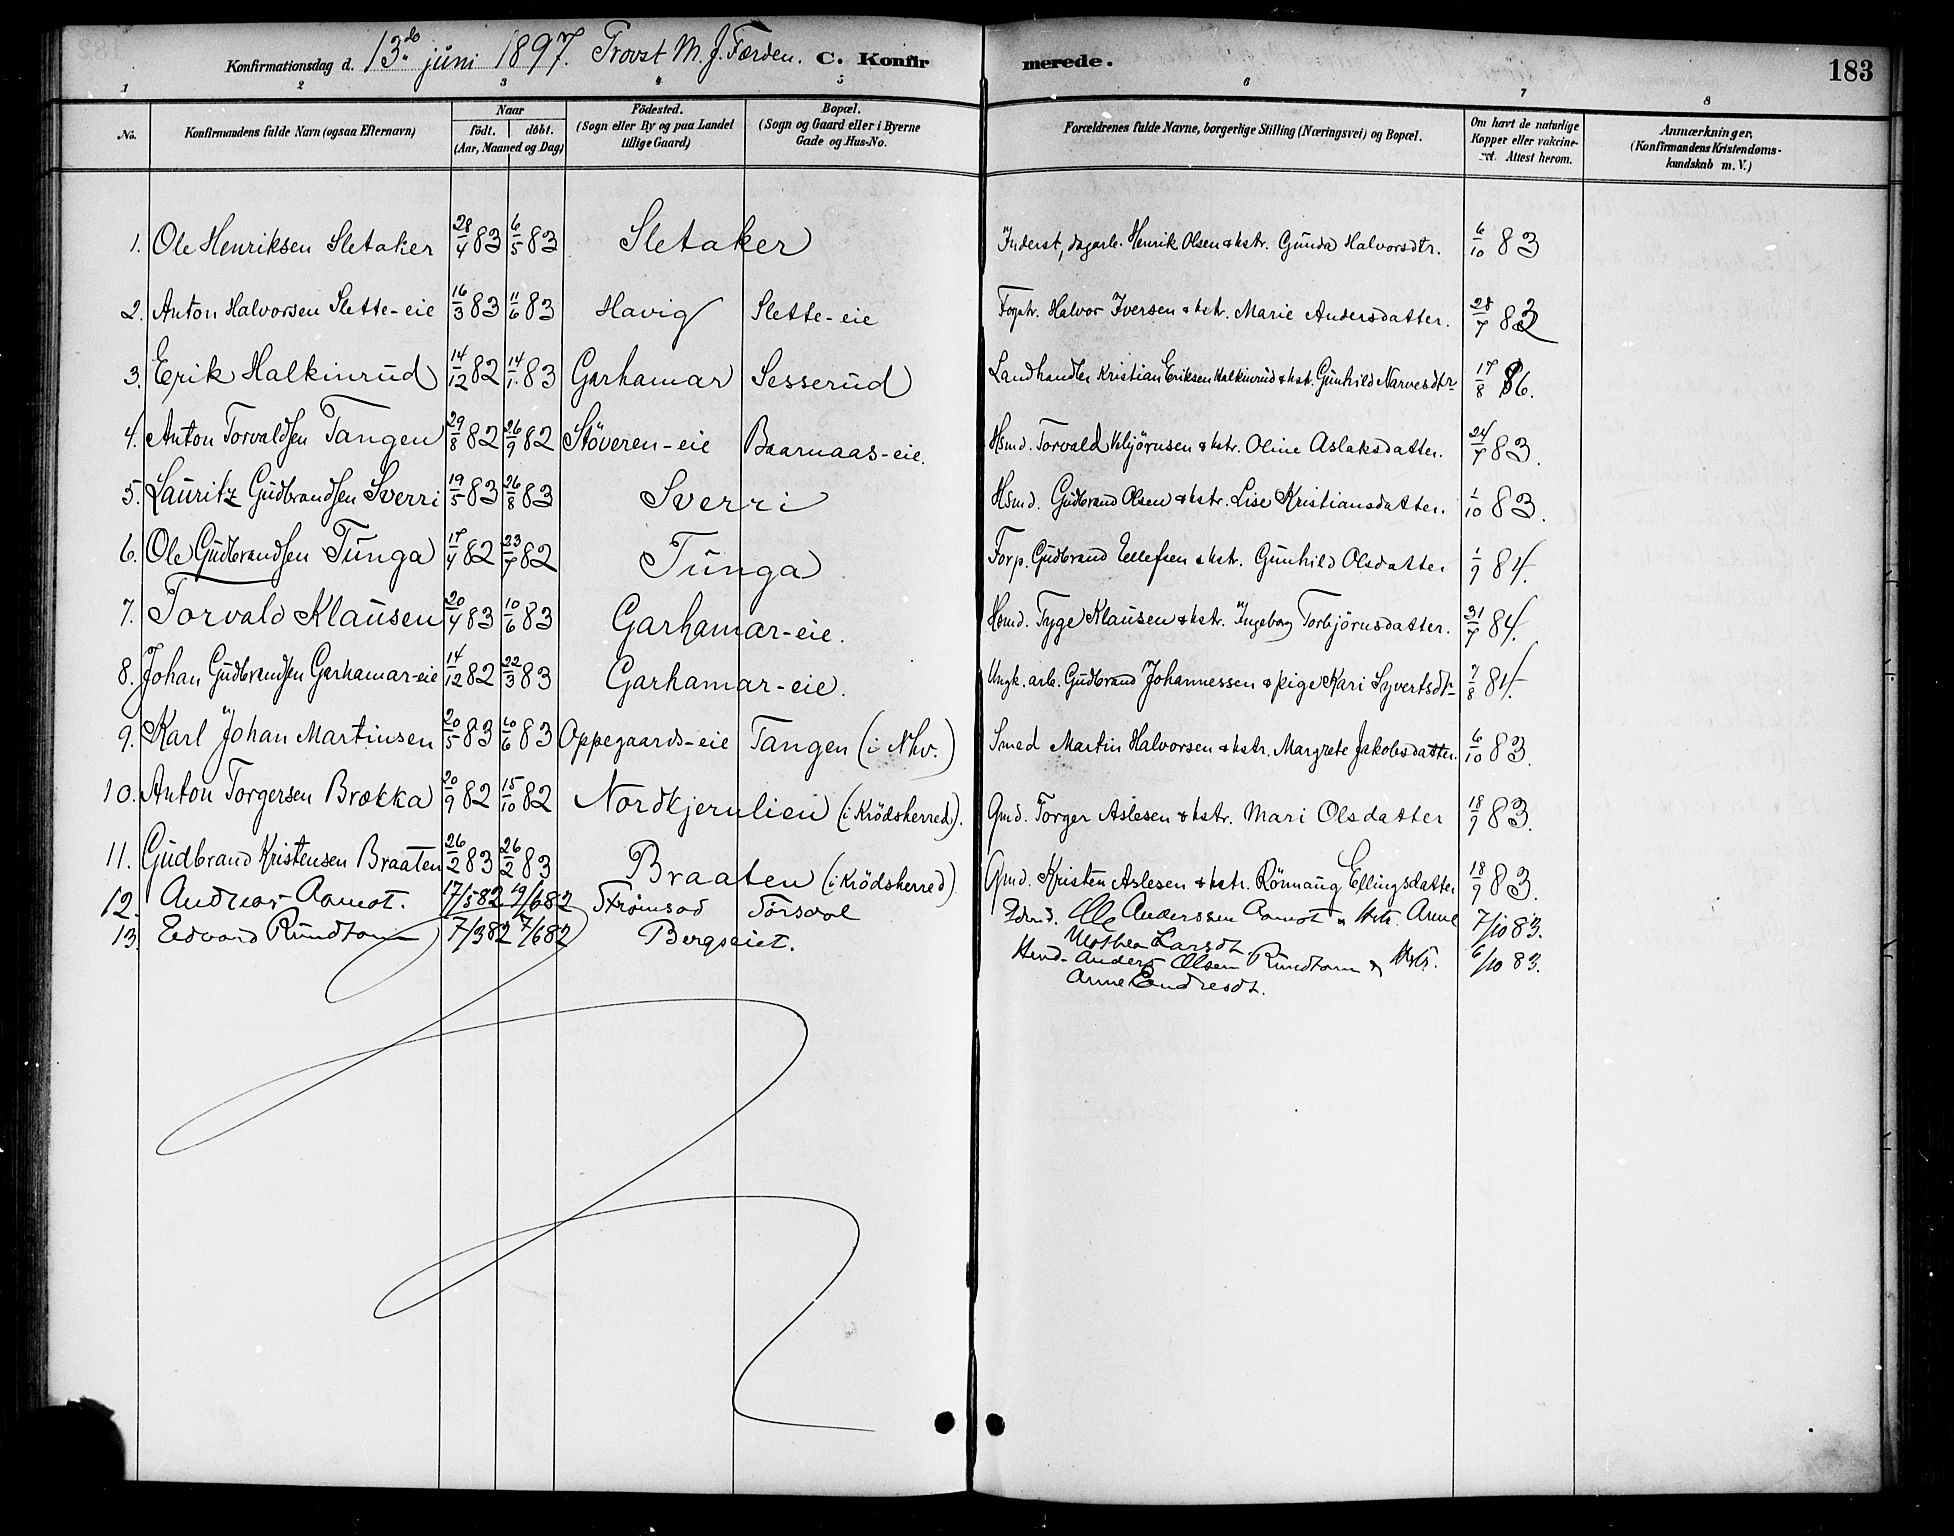 Konfirmationsdag d. 13de juni 1897. Provst M. J. Færden. C. Konfirmerede. 183
1 2 3 4 5 6 7 8
No. Konfirmandens fulde Navn (ogsaa Efternavn) Naar født. døbt. (Aar, Maaned og Dag) Fødested. (Sogn eller By og paa Landet tillige Gaard) Bopæl. (Sogn og Gaard eller i Byerne Gade og Hus-No. Forældrenes fulde Navne, borgerlige Stilling (Næringsvei) og Bopæl. Om havt de naturlige Kopper eller vakcineret. Attest herom. Anmærkninger. (Konfirmandens Kristendomskundskab m. V.)
1. Ole Henriksen Sletaker 28/4 83 6/5 83 Sletaker Inderst, dagarb. Henrik Olsen & hstr. Gunda Halvorsdtr. 6/10 83
2. Anton Halvorsen Slette-eie 16/3 83 11/6 83 Havig Slette-eie Halvor Iversen & hstr. Marie Andersdatter. 28/7 82
3. Erik Halkinrud 14/12 82 14/1 83 Garhamar Sesserud Landhandler Kristian Eriksen Halkinrud & hst. Gunhild Narvesdtr 17/8 86.
4. Anton Torvaldsen Tangen 29/8 82 26/9 82 Støveren-eie Baarnaas-eie. Hsmd. Torvald Kljørnsen & hstr. Oline Aslaksdatter. 24/7 83.
5. Lauritz Gudbrandsen Sverri 19/5 83 26/8 83 Sverri Hsmd. Gudbrand Olsen & hstr. Lise Kristiansdatter. 1/10 83.
6. Ole Gudbrandsen Tunga 17/4 82 23/7 82 Tunga Forp. Gudbrand Ellefsen & hstr. Gunhild Olsdatter 1/9 84.
7. Torvald Klausen 20/4 83 10/6 83 Garhamar-eie. Hsmd. Tyge Klausen & hstr. Ingeborg Torbjørnsdatter. 31/7 84.
8. Johan Gudbrandsen Garhamar-eie 14/12 82 22/3 83 Garhamar-eie. Ungk. arb. Gudbrand Johannessen & pige Kari Syvertsdtr 7/8 84.
9. Karl Johan Martinsen 20/5 83 10/6 83 Oppegaards-eie Tangen (i Nhv.) Smed Martin Halvorsen & hstr. Margrete Jakobsdatter. 6/10 83.
10. Anton Torgersen Brækka 20/9 82 15/10 82 Nordkjernlien (i Krödsherred). Gmd. Torger Aslesen & hstr. Mari Olsdatter 18/9 83.
11. Gudbrand Kristensen Braaten 26/2 83 26/2 83 Braaten (i Krödsherred) Gmd. Kristen Aslesen & hstr. Rönnaug Ellingsdatter 18/9 83.
12. Andreas Aamot. 17/5 82 19/6 82 Strømsod Ole Anderssen Aamot & Hstr. Anne 7/10 83.
Mathea Larsdt
13. Edvard Rundtom 7/3 82 7/6 82 Bergseiet. Anders Olsen Rundtom & Hstr. 6/10 83.
Anne Endresdt.